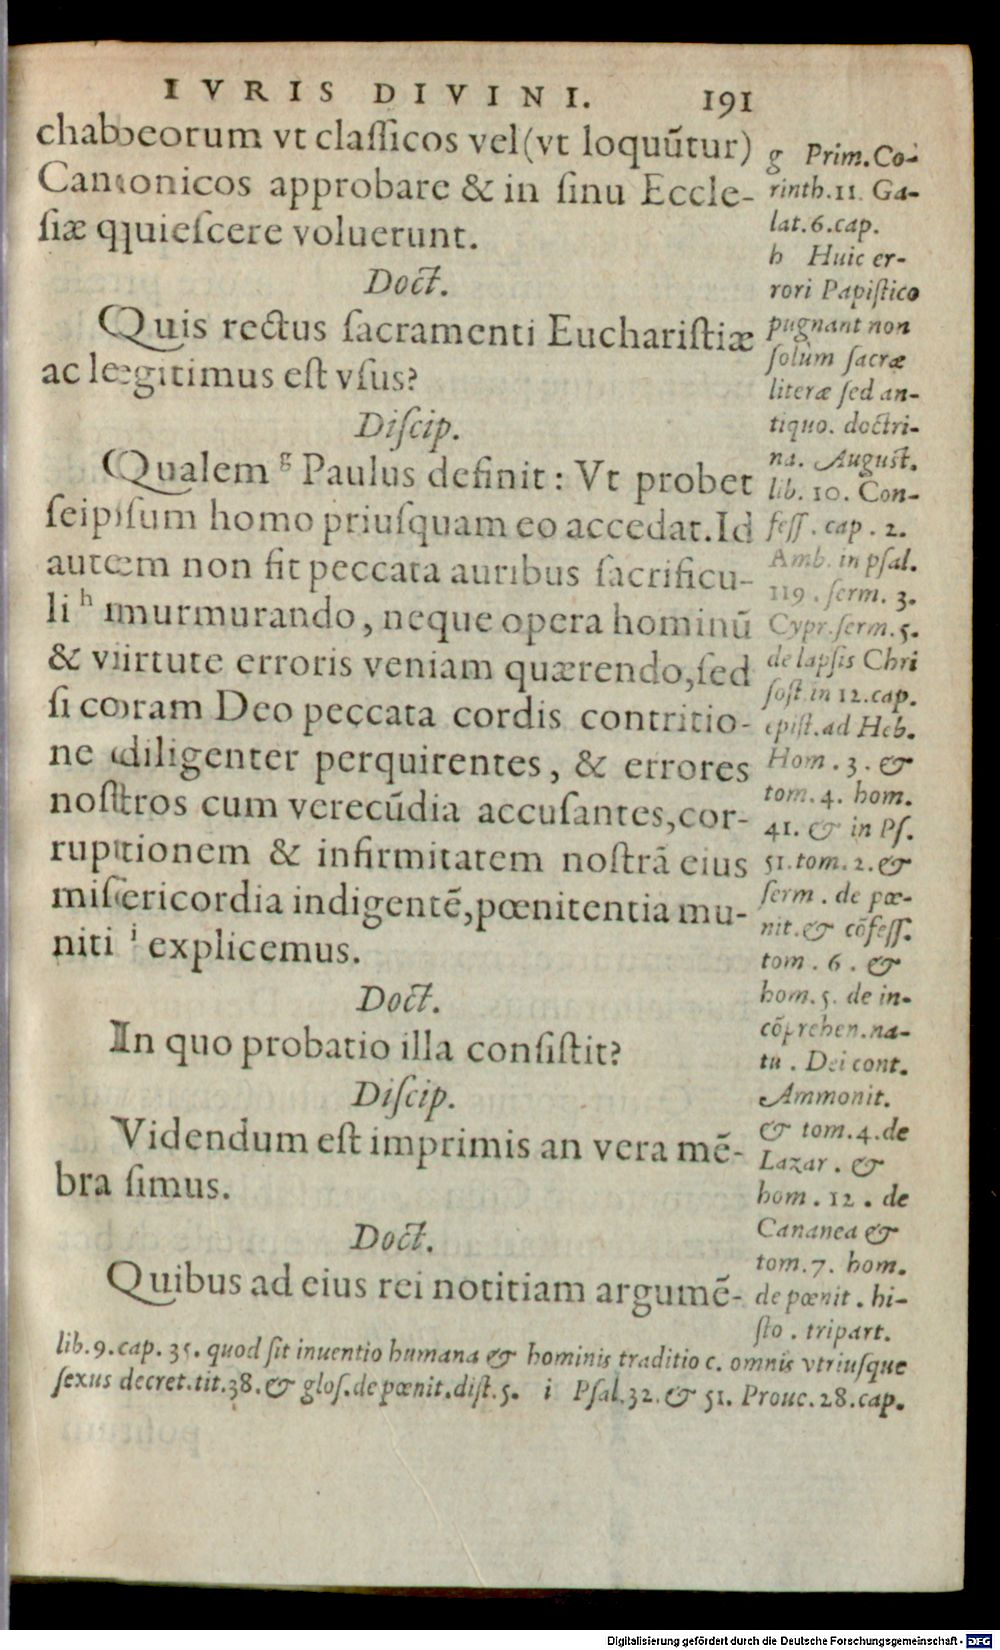 IVRIS DIVINI. 191
chabæorum vt classicos vel (vt loquūtur)
Canonicos approbare & in sinu Eccle-
siæ quiescere voluerunt.
Doct.
Quis rectus sacramenti Eucharistiæ
ac legitimus est vsus?
Discip.
Qualem g Paulus definit: Vt probet
seipsum homo priusquam eo accedat. Id
autem non fit peccata auribus sacrificu-
li h murmurando, neque opera hominū
& virtute erroris veniam quærendo, sed
si coram Deo peccata cordis contritio-
ne diligenter perquirentes, & errores
nostros cum verecūdia accusantes, cor-
ruptionem & infirmitatem nostrā eius
misericordia indigentē, pœnitentia mu-
niti i explicemus.
Doct.
In quo probatio illa consistit?
Discip.
Videndum est imprimis an vera mē-
bra simus.
Doct.
Quibus ad eius rei notitiam argumē-
g Prim. Co-
rinth. 11. Ga-
lat. 6. cap.
h Huic er-
rori Papistico
pugnant non
solùm sacræ
literæ sed an-
tiquo. doctri-
na. August.
lib. 10. Con-
fess. cap. 2.
Amb. in psal.
119. serm. 3.
Cypr. serm. 5.
de lapsis Chri
sost. in 12. cap.
epist. ad Heb.
Hom. 3. &
tom. 4. hom.
41. & in Ps.
51. tom. 2. &
serm. de pœ-
nit. & cōfess.
tom. 6. &
hom. 5. de in-
cōprehen. na-
tu. Dei cont.
Ammonit.
& tom. 4. de
Lazar. &
hom. 12. de
Cananea &
tom. 7. hom.
de pœnit. hi-
sto. tripart.
lib. 9. cap. 35. quod sit inuentio humana & hominis traditio c. omnis vtriusque
sexus decret. tit. 38. & glos. de pœnit. dist. 5. i Psal. 32. & 51. Prouc. 28. cap.
Digitalisierung gefördert durch die Deutsche Forschungsgemeinschaft - DFG